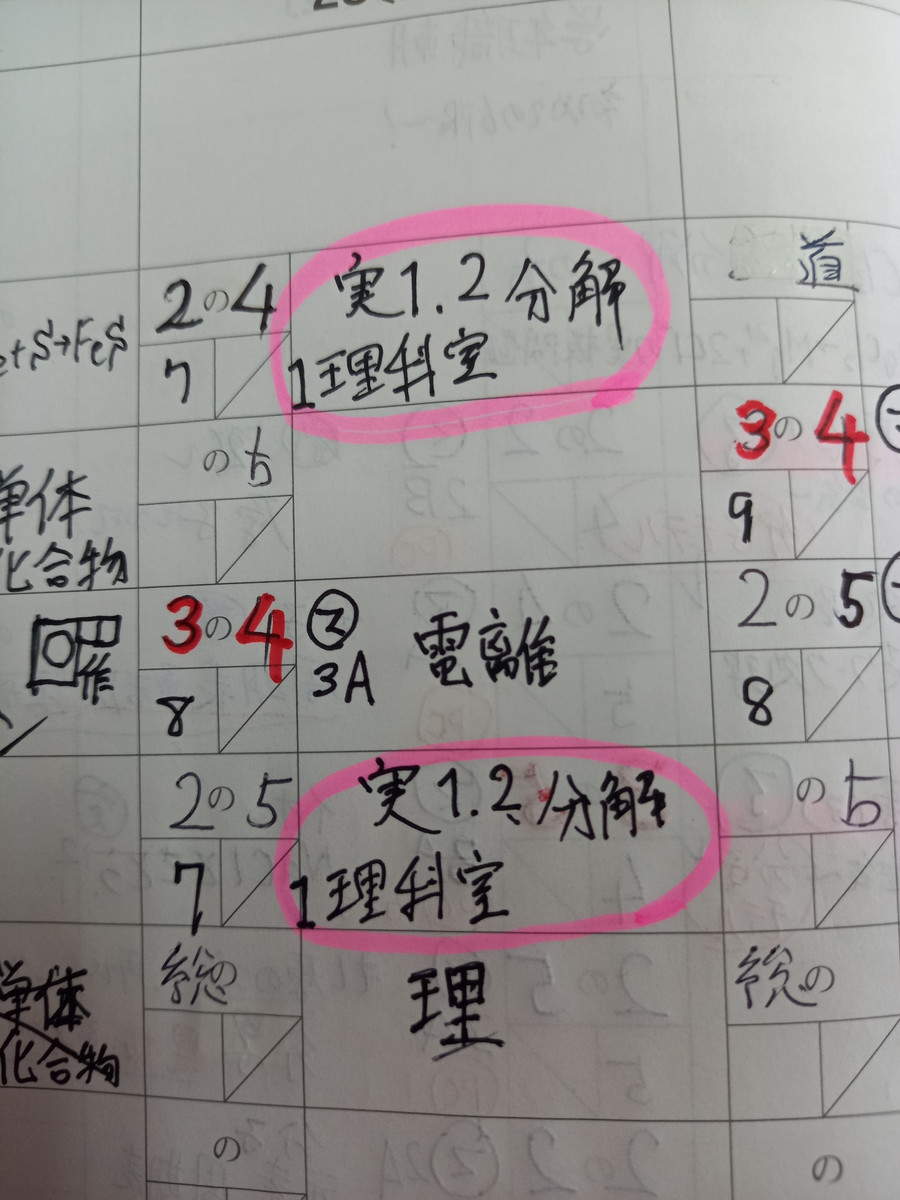 2の4 実1.2分解 道
+S→FeS
7 1理科室
のち 3の4
単体 9
化合物
3の4 ② 電離 2の5
作 3A
8 8
2の5 実1.2分解 のち
7 1理科室
総の 理 総の
単体
化合物
の の